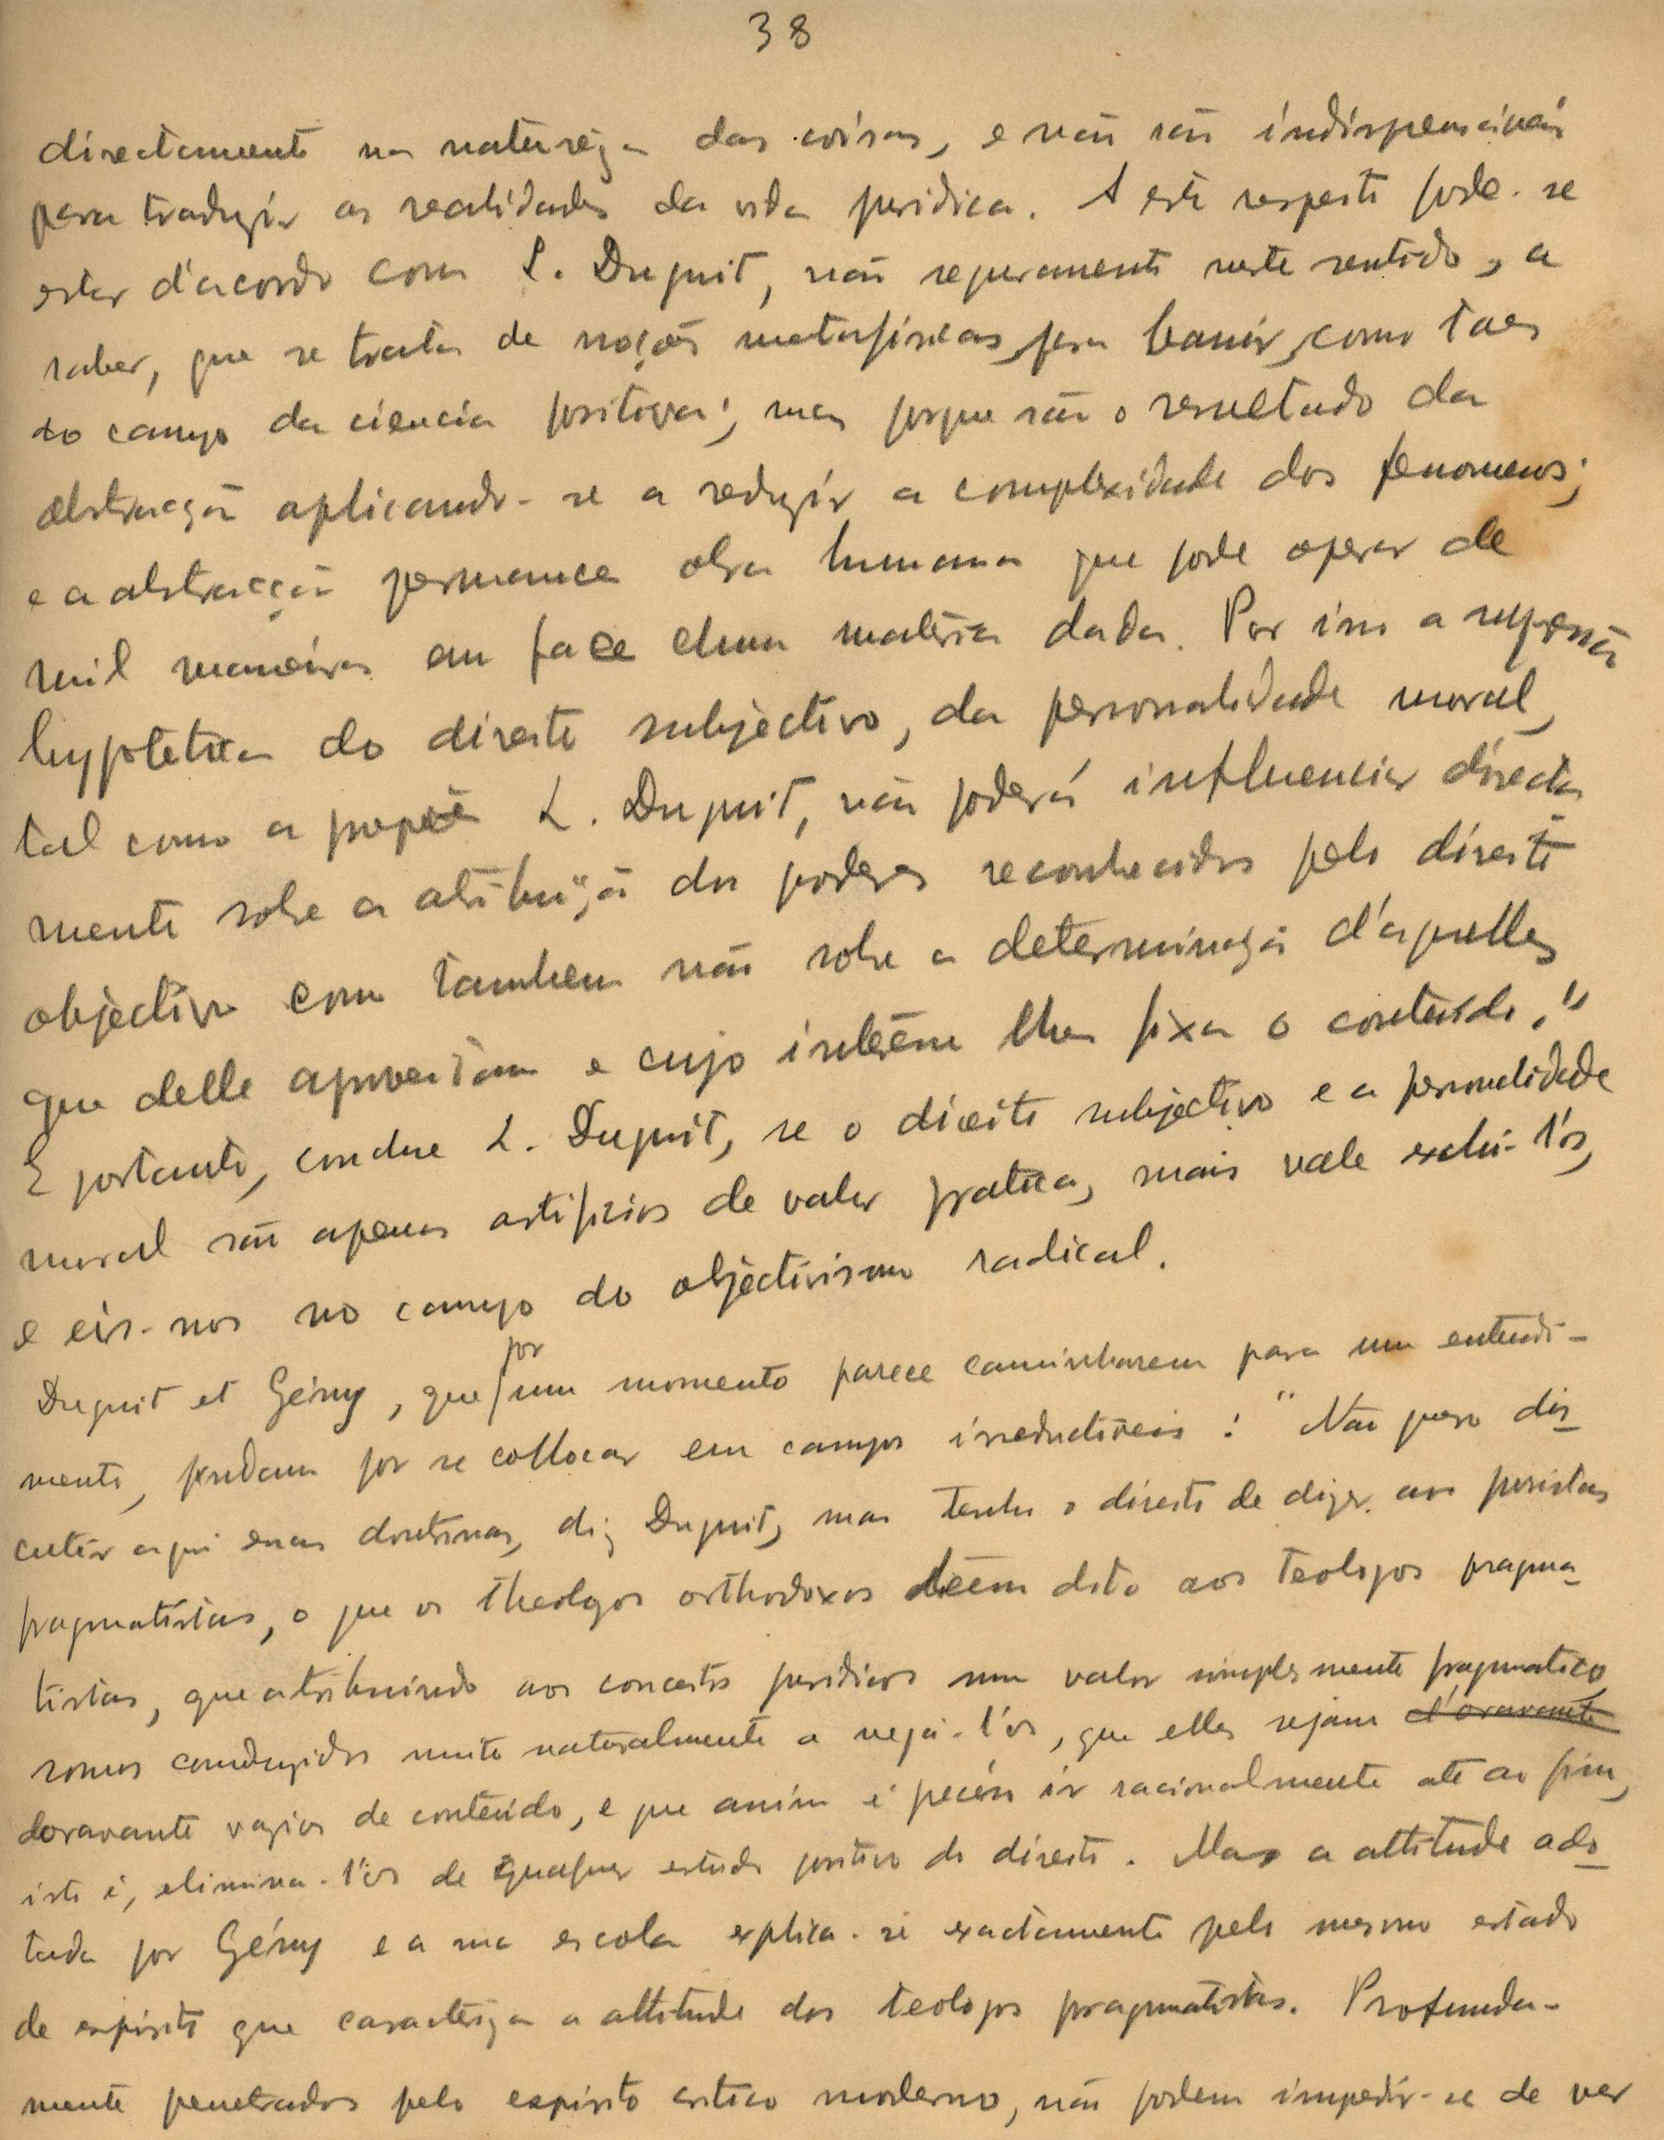 38
directamente na natureza das coisas, e não são indispensáveis
para traduzir as realidades da vida juridica. A este respeito pode-se
estar d'acordo com L. Duguit, não seguramente neste sentido, a
saber, que se trata de noções metafisicas, para banir, como taes
do campo da ciencia positiva; mas porque são o resultado da
abstracção aplicando-se a reduzir a complexidade dos fenomenos;
e a abstracção permanece obra humana que pode operar de
mil maneiras em face duma matéria dada. Por isso a supressão
hypotetica do direito subjectivo, da personalidade moral,
tal como a propõe L. Duguit, não poderá influenciar directa
mente sobre a atribuição dos poderes reconhecidos pelo direito
objectivo com tambem não sobre a determinação d'aquelles
que delle aproveitam e cujo interesse lhes fixa o conteúdo."
E portanto, conclue L. Duguit, se o direito subjectivo e a personalidade
moral são apenas artificios de valor pratica, mais vale exclui-l'os,
e eis-nos no campo do objectivismo radical.
Duguit et Gény, que por um momento parece caminharem para um entendi-
mento, findam por se collocar em campos irreductiveis: "Não posso dis-
cutir aqui essas doutrinas, diz Duguit, mas tenho o direito de dizer aos juristas
pragmatistas, o que os theologos orthodoxos teem dito aos teologos pragma-
tistas, que atribuindo aos conceitos juridicos um valor simplesmente pragmatico
somos conduzidos muito naturalmente a negá-l'os, que elles sejam d'oravante
doravante vazios de conteúdo, e que assim é preciso ir racionalmente até ao fim,
isto é, elimina-l'os de qualquer estudo positivo do direito. Mas a attitude ado-
tada por Gény e a sua escola explica-se exactamente pelo mesmo estado
de espirito que caracteriza a attitude dos teologos pragmatistas. Profunda-
mente penetrados pelo espirito critico moderno, não podem impedir-se de ver